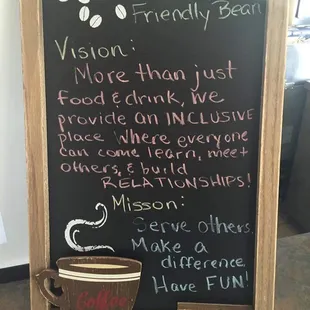 Friendly Bean
Vision:
More than just
food & drink, we
provide an INCLUSIVE
place where everyone
can come learn, meet
others, & build
RELATIONSHIPS!
Misson:
Serve others
Make a
difference
Have FUN!
Coffee